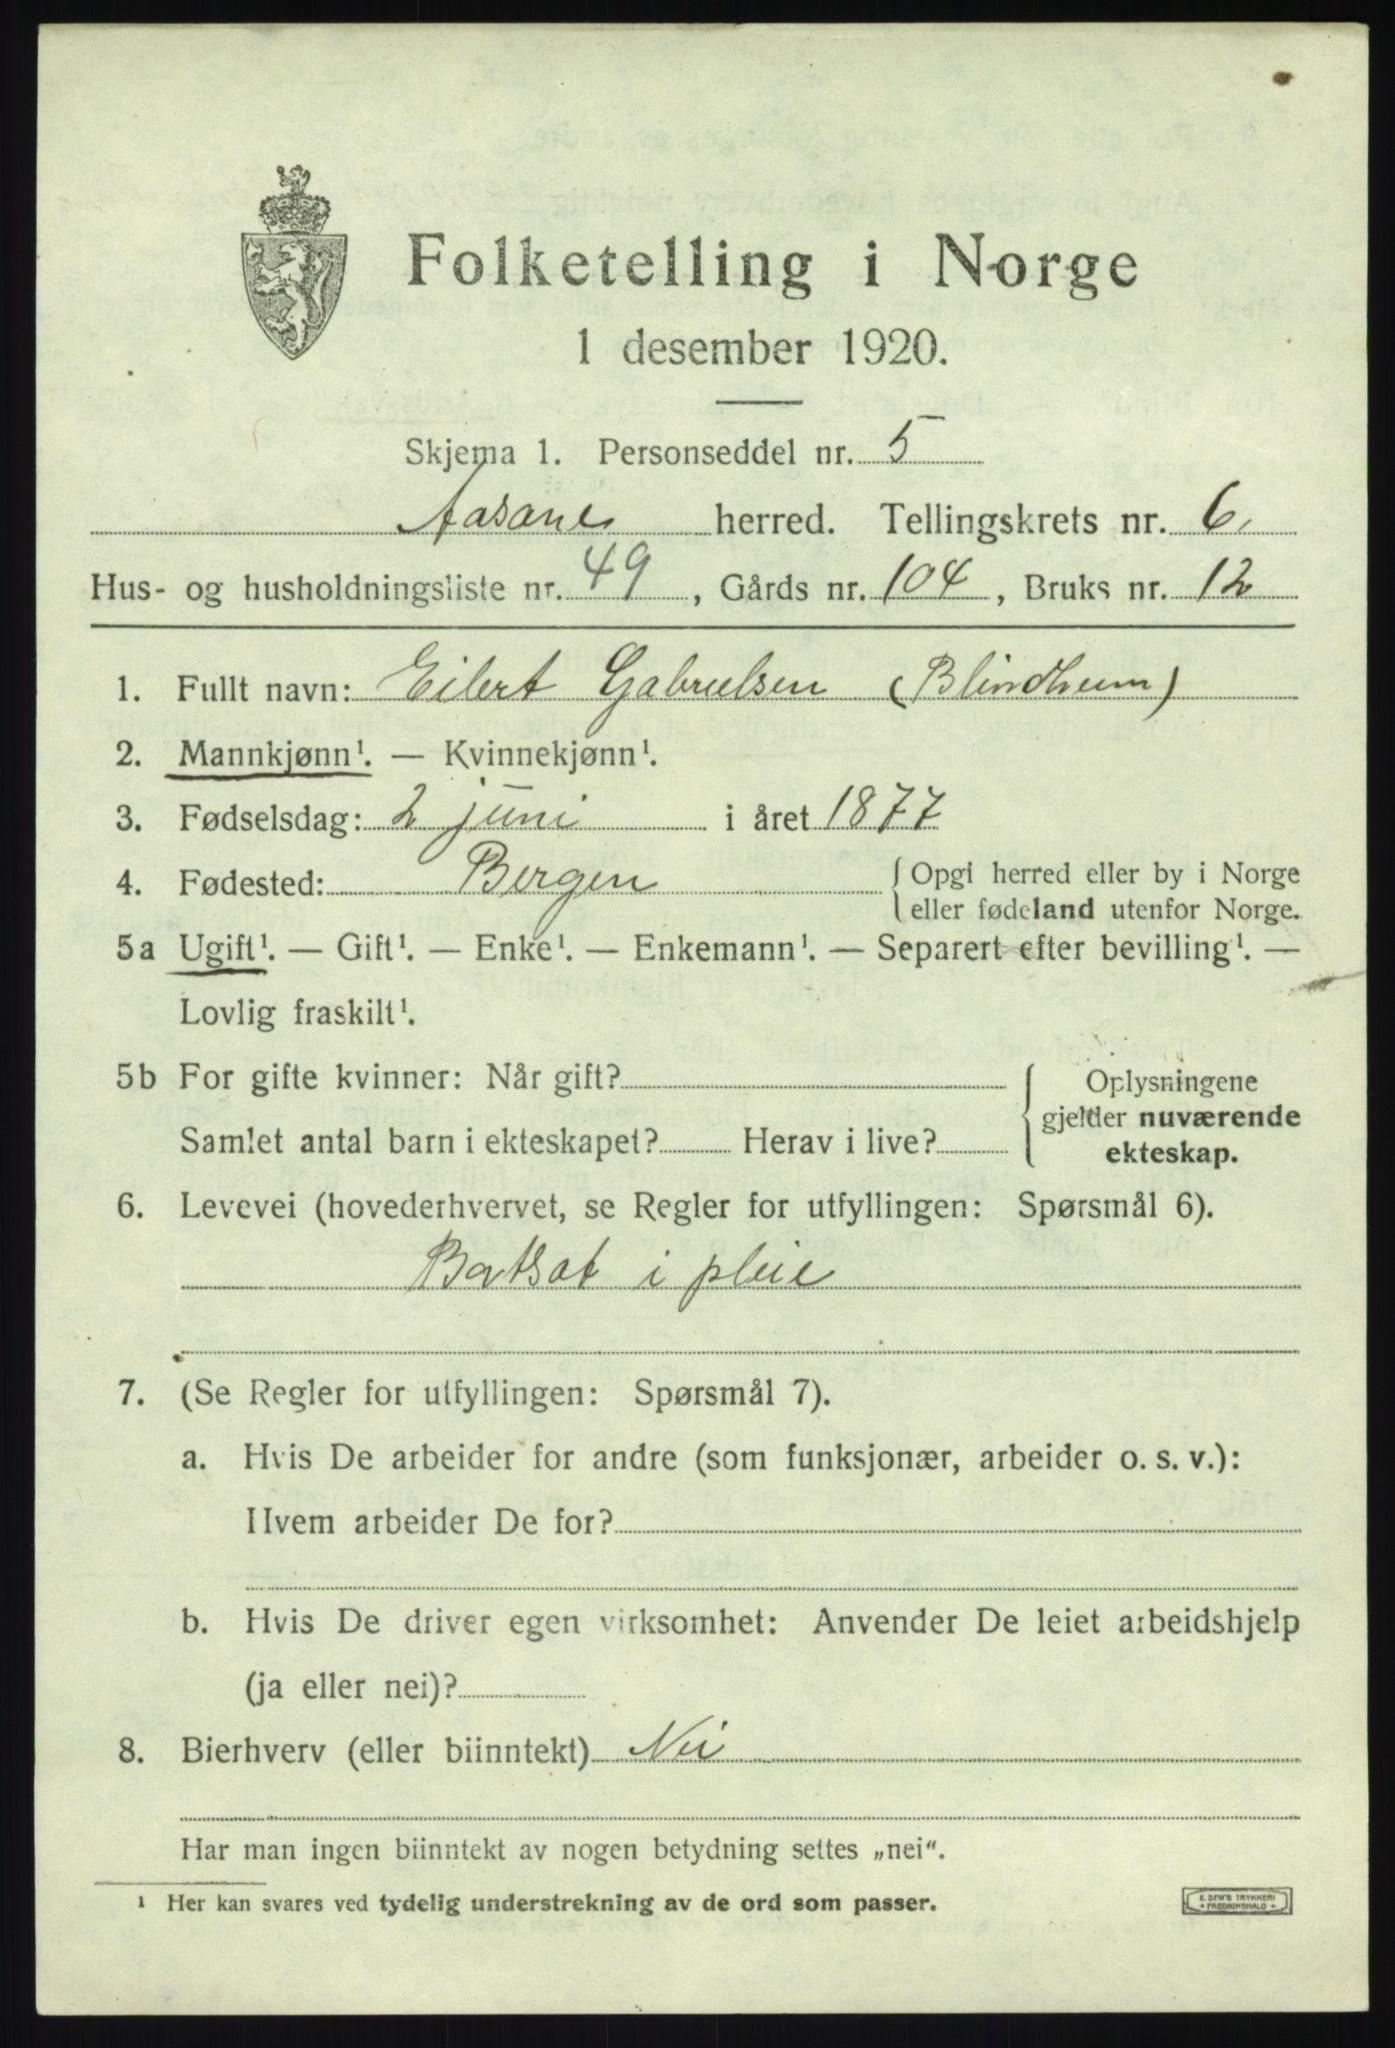 Folketelling i Norge
1 desember 1920.
Skjema 1. Personseddel nr. 5
Aasane herred. Tellingskrets nr. 6.
Hus- og husholdningsliste nr. 49, Gårds nr. 104, Bruks nr. 12
1. Fullt navn: Eilert Gabrielsen (Blindheim)
2. Mannkjønn¹. — Kvinnekjønn¹.
3. Fødselsdag: 2 juni i året 1877
4. Fødested: Bergen { Opgi herred eller by i Norge
eller fødeland utenfor Norge.
5a Ugift¹. — Gift¹. — Enke¹. — Enkemann¹. — Separert efter bevilling¹. —
Lovlig fraskilt¹.
5b For gifte kvinner: Når gift? { Oplysningene
gjelder nuværende
Samlet antal barn i ekteskapet? Herav i live?
ekteskap.
6. Levevei (hovederhvervet, se Regler for utfyllingen: Spørsmål 6).
Bortsat i pleie
7. (Se Regler for utfyllingen: Spørsmål 7).
a. Hvis De arbeider for andre (som funksjonær, arbeider o. s. v.):
Hvem arbeider De for?
b. Hvis De driver egen virksomhet: Anvender De leiet arbeidshjelp
(ja eller nei)?
8. Bierhverv (eller biinntekt) Nei
Har man ingen biinntekt av nogen betydning settes „nei“.
¹ Her kan svares ved tydelig understrekning av de ord som passer.
E. SEM'S TRYKKERI
* FREDRIKSHALD *